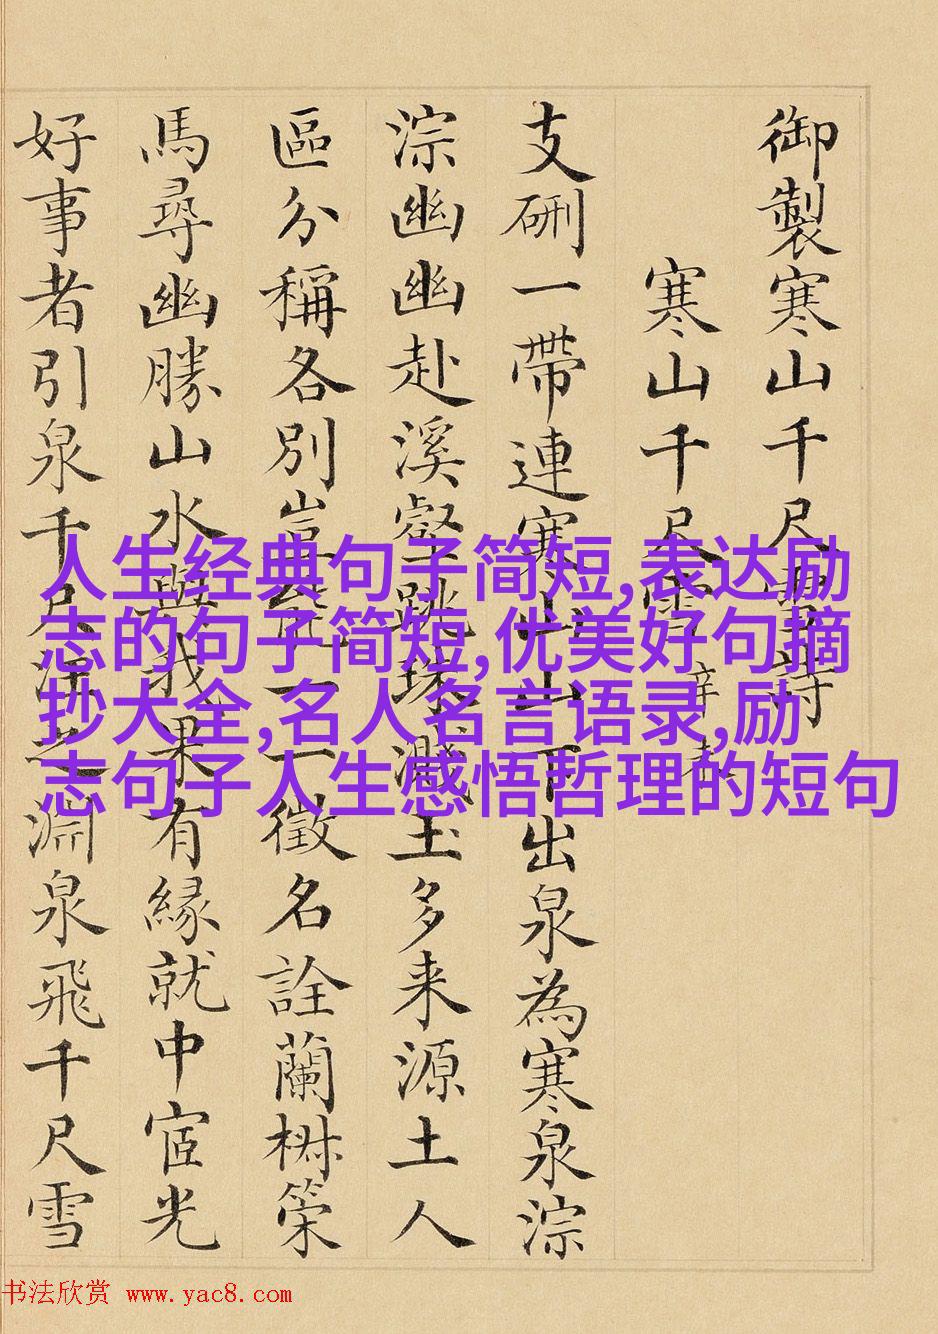 御製寒山千尺雪詩
寒山千尺雪 辛
支硎一帶連寒山山下出泉為寒泉淙
淙幽幽赴溪壑跳珠濺玉多来源土人
區分稱各別豈能一一徵名詮蘭椒策
馬尋幽勝山水與我果有緣就中宧光
好事者引泉千尺注之淵泉飛千尺雪
人生经典句子简短,表达励
志的句子简短,优美好句摘
抄大全,名人名言语录,励
志句子人生感悟哲理的短句
书法欣赏 www.yac8.com